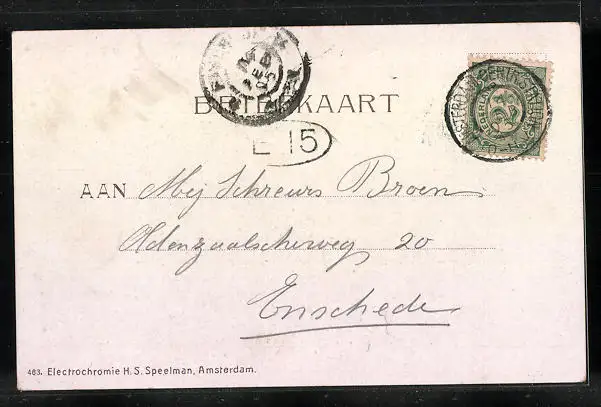 BRIEFKAART
E 15
AAN Mej Schreurs Broen
Oldenzaalscheweg 20
Enschede
463. Electrochromie H. S. Speelman, Amsterdam.
NEDERLAND
2½